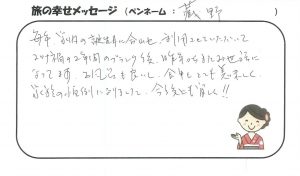 旅の幸せメッセージ（ペンネーム：蔵野）
毎年 家内の誕生日に合わせ 利用させていただいて
2年間のブランク後、昨年からまたお世話に
なって3回 お風呂も良いし、食事もとても美味しく、
家族の恒例になりました。今後とも宜しく!!